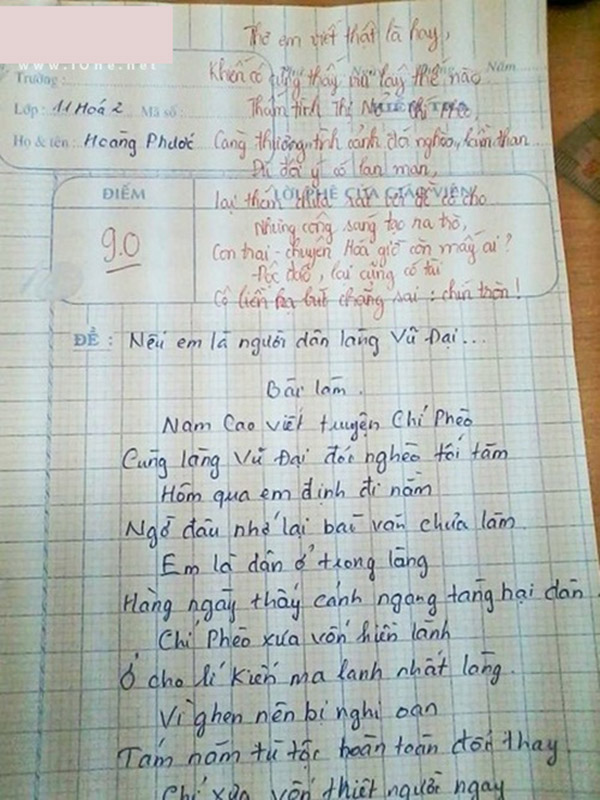 www.ione.net
Thơ em viết thật là hay,
Khiến cô cũng thấy mà lay thế nào
Năm
Trường :
Lớp : 11 Hoá 2 Mã số :
Thảm tình Thị Nở Chí Phèo,
Họ & tên : Hoàng Phước
Càng thương tình cảnh đói nghèo, lầm than
Dù đôi ý có lan man,
ĐIỂM
LỜI PHÊ CỦA GIÁO VIÊN
lại thêm chưa sát với đề cô cho
9.0
Nhưng công sáng tạo ra trò,
Con trai - chuyên Hoá giờ còn mấy ai?
Độc đáo, lại cũng có tài
Cô liền hạ bút chẳng sai : chín tròn!
ĐỀ : Nếu em là người dân làng Vũ Đại...
Bài làm.
Nam Cao viết truyện Chí Phèo
Cùng làng Vũ Đại đói nghèo tối tăm
Hôm qua em định đi nằm
Ngờ đâu nhớ lại bài văn chưa làm.
Em là dân ở trong làng
Hàng ngày thấy cảnh ngang tàng hại dân
Chí Phèo xưa vốn hiền lành
Ở cho lí Kiến ma lanh nhất làng.
Vì ghen nên bị nghi oan
Tám năm tù tội hoàn toàn đổi thay
Chí xưa vốn thiệt người ngay